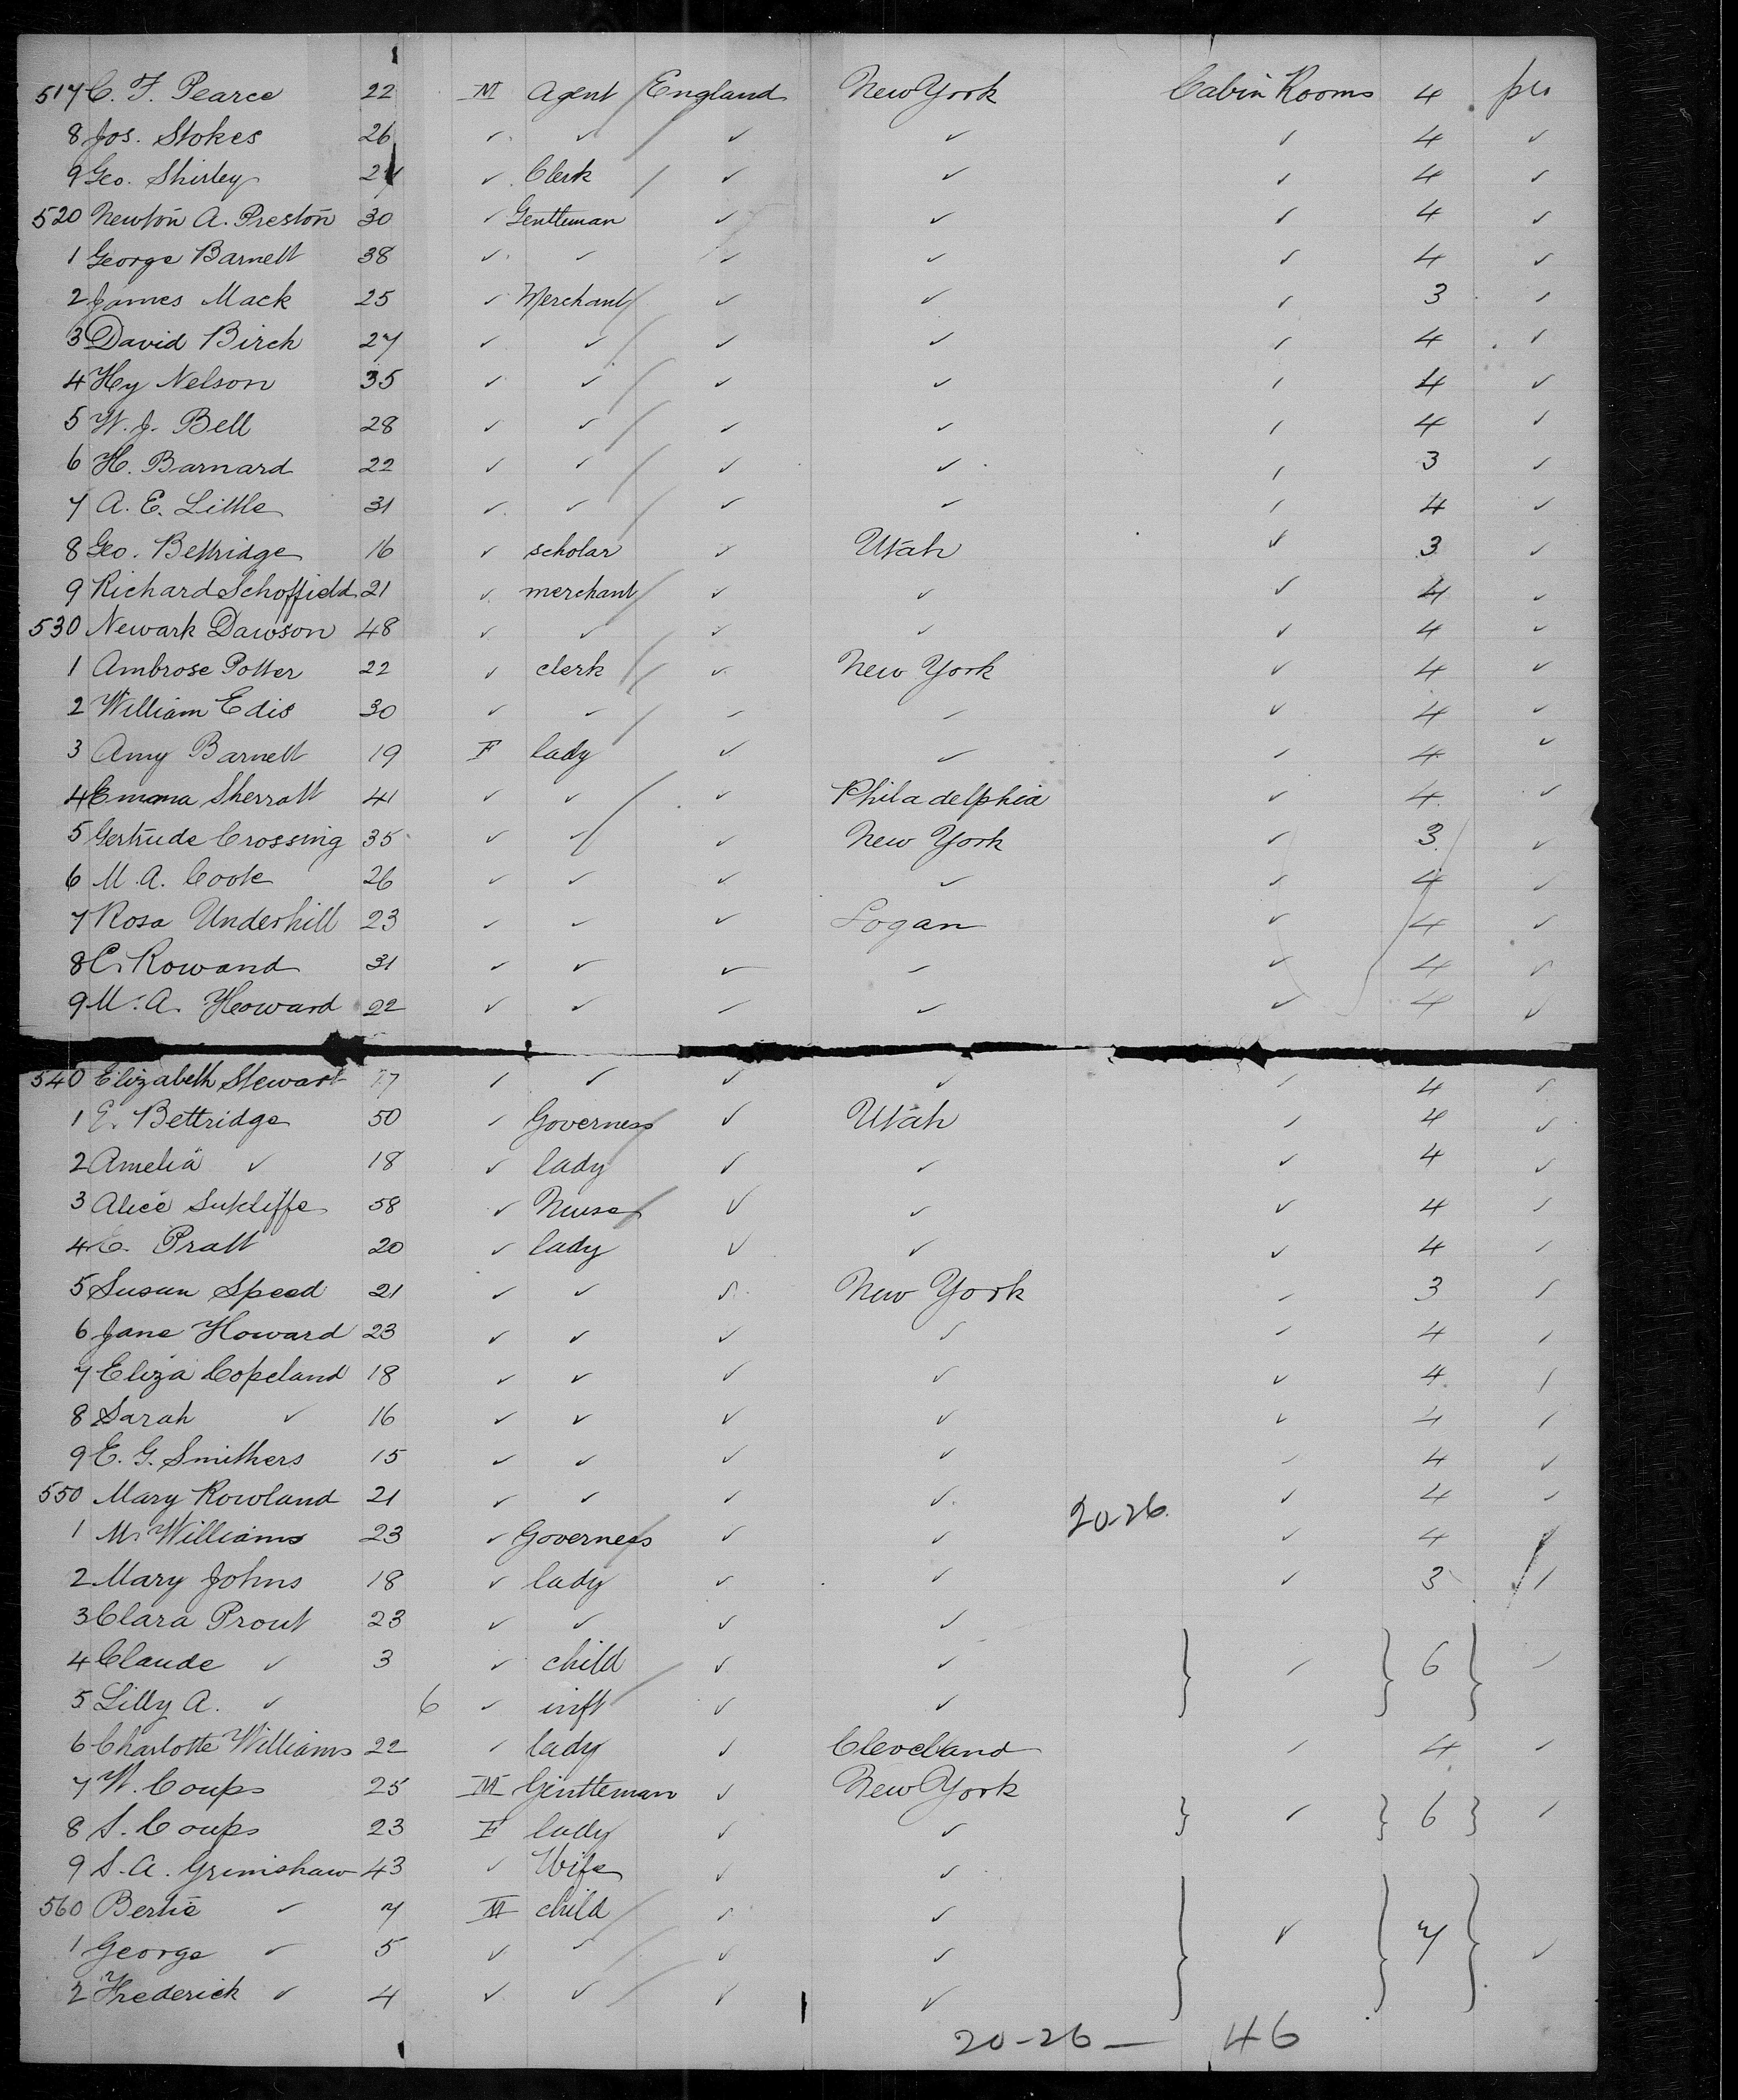 517 C. F. Pearce 22 M Agent England New York Cabin Rooms 4 pcs
8 Jos. Stokes 26 ✓ ✓ ✓ ✓ ✓ 4 ✓
9 Geo. Shirley ✓ Clerk ✓ ✓ ✓ 4 ✓
520 Newton A. Preston 30 ✓ Gentleman ✓ ✓ ✓ 4 ✓
1 George Barnett 38 ✓ ✓ ✓ ✓ ✓ 4 ✓
2 James Mack 25 ✓ Merchant ✓ ✓ ✓ 3 ✓
3 David Birch 27 ✓ ✓ ✓ ✓ ✓ 4 ✓
4 Hy Nelson 35 ✓ ✓ ✓ ✓ ✓ 4 ✓
5 W. J. Bell 28 ✓ ✓ ✓ ✓ ✓ 4 ✓
6 H. Barnard 22 ✓ ✓ ✓ ✓ ✓ 3 ✓
7 A. E. Little 31 ✓ ✓ ✓ ✓ ✓ 4 ✓
8 Geo. Bettridge 16 ✓ scholar ✓ Utah ✓ 3 ✓
9 Richard Schoffield 21 ✓ merchant ✓ ✓ ✓ 4 ✓
530 Newark Dawson 48 ✓ ✓ ✓ ✓ ✓ 4 ✓
1 Ambrose Potter 22 ✓ clerk ✓ New York ✓ 4 ✓
2 William Edis 30 ✓ ✓ ✓ ✓ ✓ 4 ✓
3 Amy Barnett 19 F lady ✓ ✓ ✓ 4 ✓
4 Emma Sherratt 41 ✓ ✓ ✓ Philadelphia ✓ 4 ✓
5 Gertrude Crossing 35 ✓ ✓ ✓ New York ✓ 3 ✓
6 M. A. Cook 26 ✓ ✓ ✓ ✓ ✓ 4 ✓
7 Rosa Underhill 23 ✓ ✓ ✓ Logan ✓ 4 ✓
8 C. Rowand 31 ✓ ✓ ✓ ✓ ✓ 4 ✓
9 M. A. Howard 22 ✓ ✓ ✓ ✓ ✓ 4 ✓
540 Elizabeth Stewart 17 ✓ ✓ ✓ ✓ ✓ 4 ✓
1 E. Bettridge 50 ✓ Governess ✓ Utah ✓ 4 ✓
2 Amelia ✓ 18 ✓ lady ✓ ✓ ✓ 4 ✓
3 Alice Sutcliffe 58 ✓ Nurse ✓ ✓ ✓ 4 ✓
4 E. Pratt 20 ✓ lady ✓ ✓ ✓ 4 ✓
5 Susan Speed 21 ✓ ✓ ✓ New York ✓ 3 ✓
6 Jane Howard 23 ✓ ✓ ✓ ✓ ✓ 4 ✓
7 Eliza Copeland 18 ✓ ✓ ✓ ✓ ✓ 4 ✓
8 Sarah ✓ 16 ✓ ✓ ✓ ✓ ✓ 4 ✓
9 E. G. Smithers 15 ✓ ✓ ✓ ✓ ✓ 4 ✓
550 Mary Rowland 21 ✓ ✓ ✓ ✓ ✓ 4 ✓
20-26
1 M. Williams 23 ✓ Governess ✓ ✓ ✓ 4 ✓
2 Mary Johns 18 ✓ lady ✓ ✓ ✓ 3 ✓
3 Clara Prout 23 ✓ ✓ ✓ ✓
4 Claude ✓ 3 ✓ child ✓ ✓ } ✓ } 6 } ✓
5 Lilly A. ✓ 6 ✓ inft ✓ ✓
6 Charlotte Williams 22 ✓ lady ✓ Cleveland ✓ 4 ✓
7 W. Coups 25 M Gentleman ✓ New York } ✓ } 6 } ✓
8 S. Coups 23 F lady ✓ ✓
9 S. A. Grimshaw 43 ✓ Wife ✓ ✓
560 Bertie ✓ 7 M child ✓ ✓ } ✓ } 7 } ✓
1 George ✓ 5 ✓ ✓ ✓ ✓
2 Frederick ✓ 4 ✓ ✓ ✓ ✓
20-26 — 46